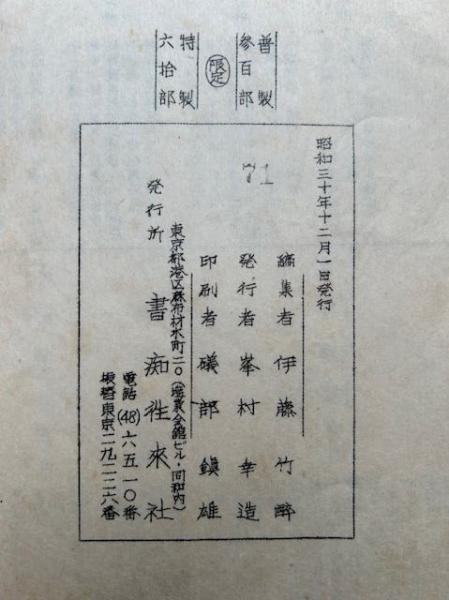 普製
参百部
限定
特製
六拾部
昭和三十年十二月一日発行
71
編集者 伊藤竹酔
発行者 峯村幸造
印刷者 礒部鎮雄
東京都港区麻布材木町二〇(塩業会館ビル・同和内)
発行所 書痴往來社
電話(48)六五一〇番
振替東京二九二二六番